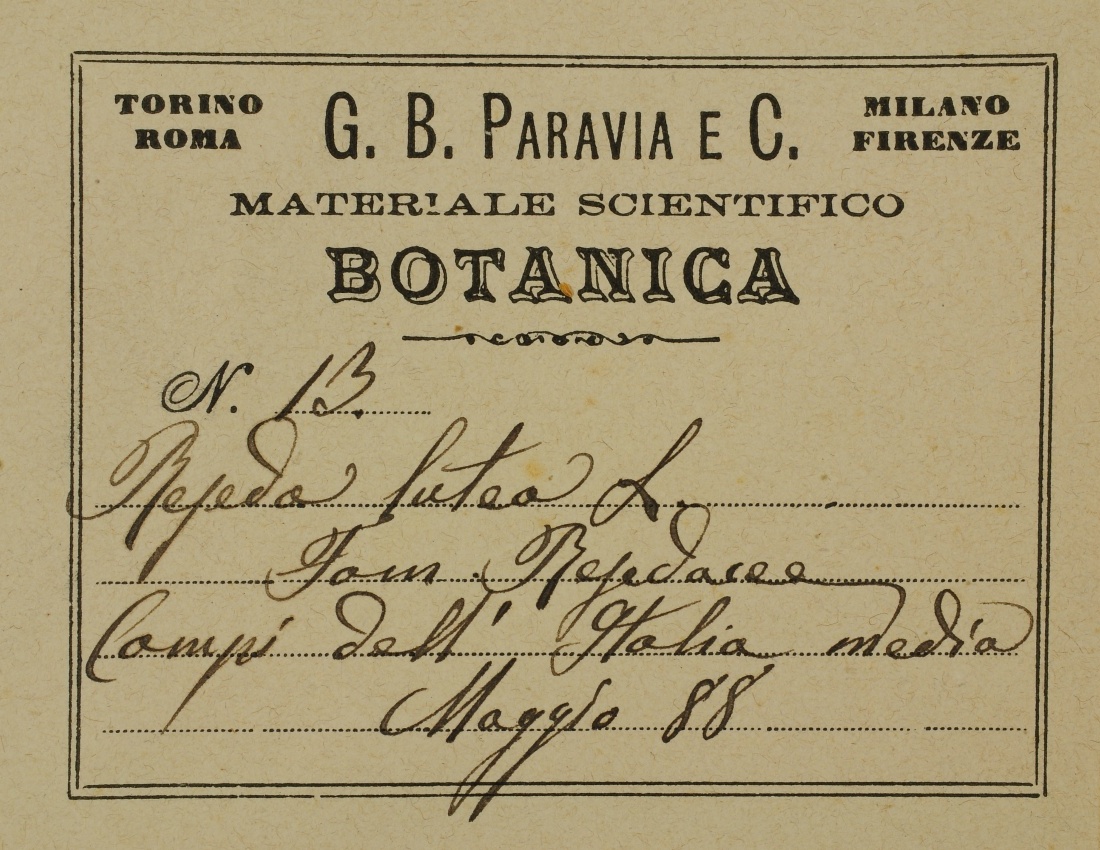 TORINO ROMA
G. B. PARAVIA E C.
MILANO FIRENZE
MATERIALE SCIENTIFICO
BOTANICA
N. 13.
Reseda lutea L.
Fam. Resedacee
Campi dell' Italia media
Maggio 88